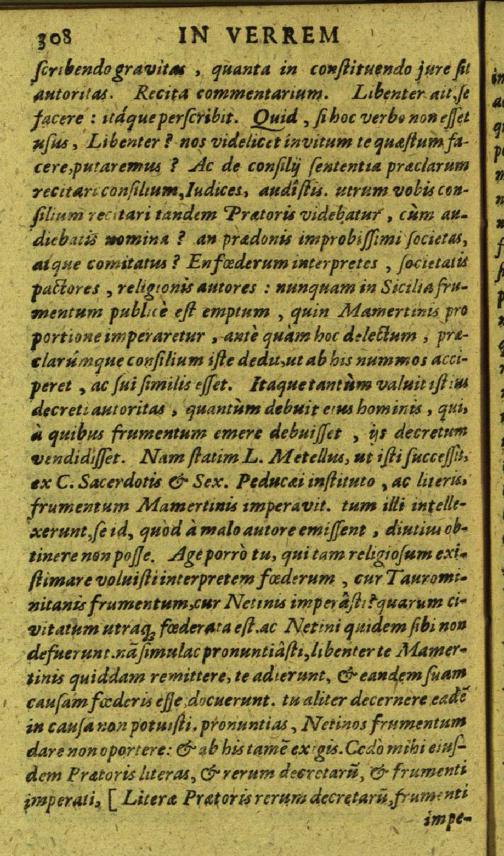 308 IN VERREM
scribendo gravitas, quanta in constituendo jure sit
autoritas. Recita commentarium. Libenter ait, se
facere: itáque perscribit. Quid, si hoc verbo non esset
usus, Libenter? nos videlicet invitum te quæstum fa-
cere, putaremus? Ac de consilij sententia præclarum
recitari consilium, Iudices, audistis. utrum vobis con-
silium recitari tandem Prætoris videbatur, cùm au-
diebatis nomina? an prædonis improbissimi societas,
atque comitatus? En fœderum interpretes, societatis
pactores, religionis autores: nunquam in Sicilia fru-
mentum publicè est emptum, quin Mamertinis pro
portione imperaretur, antè quàm hoc delectum, præ-
clarúmque consilium iste dedit, ut ab his nummos acci-
peret, ac sui similis esset. Itaque tantùm valuit istius
decreti autoritas, quantùm debuit eius hominis, qui,
à quibus frumentum emere debuisset, ijs decretum
vendidisset. Nam statim L. Metellus, ut isti successit,
ex C. Sacerdotis & Sex. Peducæi instituto, ac literis,
frumentum Mamertinis imperavit. tum illi intelle-
xerunt, se id, quòd à malo autore emissent, diutius ob-
tinere non posse. Age porrò tu, qui tam religiosum exi-
stimare voluisti interpretem fœderum, cur Tauromi-
nitanis frumentum, cur Netinis imperâsti? quarum ci-
vitatum utraq; fœderata est. ac Netini quidem sibi non
defuerunt. nã simulac pronuntiâsti, libenter te Mamer-
tinis quiddam remittere, te adierunt, & eandem suam
causam fœderis esse, docuerunt. tu aliter decernere eadē
in causa non potuisti. pronuntias, Netinos frumentum
dare non oportere: & ab his tamē exigis. Cedò mihi eius-
dem Prætoris literas, & rerum decretarũ, & frumenti
imperati, [ Literæ Prætoris rerum decretarũ, frumenti
impe-